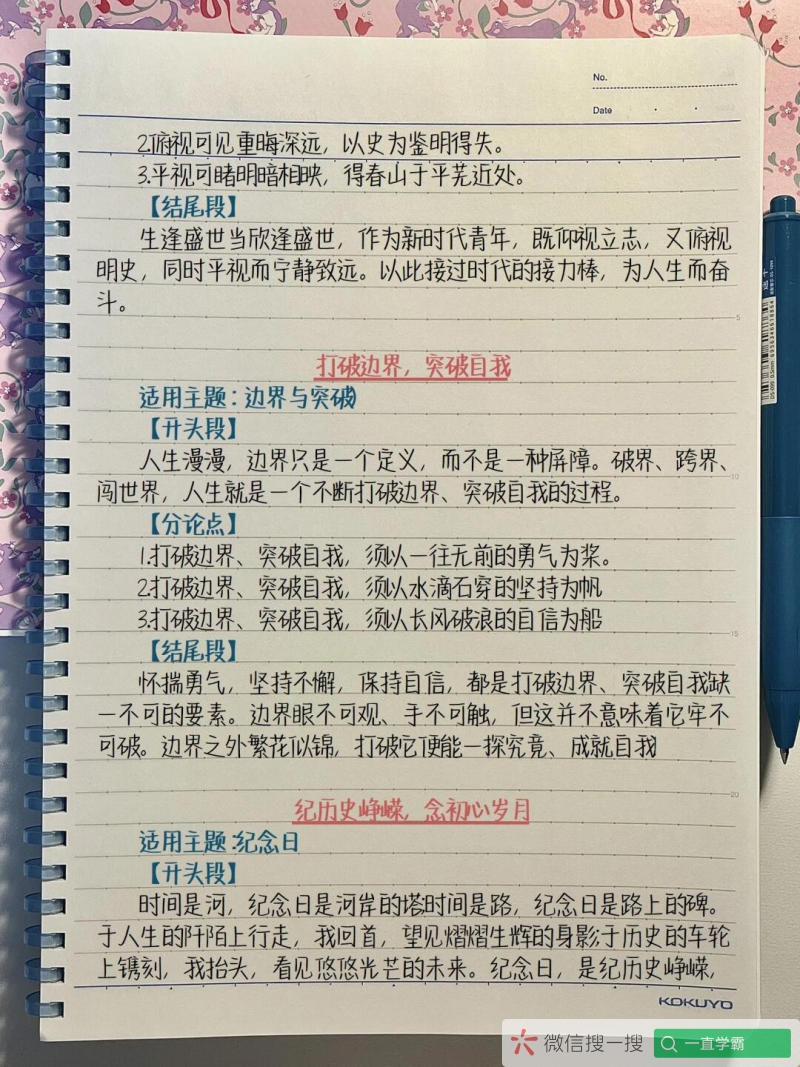 No.
Date
2.俯视可见重晦深远，以史为鉴明得失。
3.平视可睹明暗相映，得春山于平芜近处。
【结尾段】
生逢盛世当欣逢盛世，作为新时代青年，既仰视立志，又俯视
明史，同时平视而宁静致远。以此接过时代的接力棒，为人生而奋
斗。
5
打破边界，突破自我
适用主题：边界与突破
【开头段】
人生漫漫，边界只是一个定义，而不是一种屏障。破界、跨界、
10
闯世界，人生就是一个不断打破边界、突破自我的过程。
【分论点】
1.打破边界、突破自我，须以一往无前的勇气为桨。
2.打破边界、突破自我，须以水滴石穿的坚持为帆
3.打破边界、突破自我，须以长风破浪的自信为船
15
【结尾段】
怀揣勇气，坚持不懈，保持自信，都是打破边界、突破自我缺
一不可的要素。边界眼不可观、手不可触，但这并不意味着它牢不
可破。边界之外繁花似锦，打破它便能一探究竟、成就自我
20
纪历史峥嵘，念初心岁月
适用主题：纪念日
【开头段】
时间是河，纪念日是河岸的塔时间是路，纪念日是路上的碑。
于人生的阡陌上行走，我回首，望见熠熠生辉的身影于历史的车轮
上镌刻，我抬头，看见悠悠光芒的未来。纪念日，是纪历史峥嵘，
KOKUYO
微信搜一搜
一直学霸